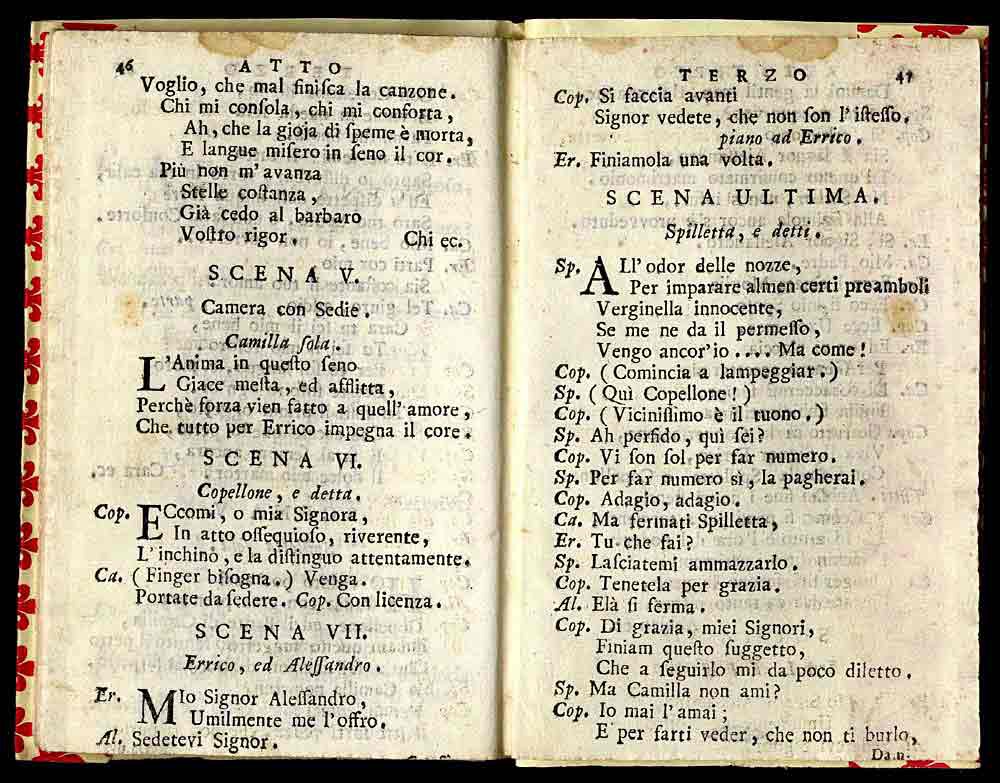 46 ATTO
Voglio, che mal finiſca la canzone.
Chi mi conſola, chi mi conforta,
Ah, che la gioja di ſpeme è morta,
E langue miſero in ſeno il cor.
Più non m'avanza
Stelle coſtanza,
Già cedo al barbaro
Voſtro rigor. Chi ec.
SCENA V.
Camera con Sedie.
Camilla ſola.
L'Anima in queſto ſeno
Giace meſta, ed afflitta,
Perchè forza vien fatto a quell'amore,
Che tutto per Errico impegna il core.
SCENA VI.
Copellone, e detta.
Cop. ECcomi, o mia Signora,
In atto oſſequioſo, riverente,
L'inchino, e la diſtinguo attentamente.
Ca. (Finger biſogna.) Venga.
Portate da ſedere. Cop. Con licenza.
SCENA VII.
Errico, ed Aleſſandro.
Er. MIo Signor Aleſſandro,
Umilmente me l'offro.
Al. Sedetevi Signor.
TERZO 47
Cop. Si faccia avanti
Signor vedete, che non ſon l'iſteſſo.
piano ad Errico.
Er. Finiamola una volta.
SCENA ULTIMA.
Spilletta, e detti.
Sp. ALl'odor delle nozze,
Per imparare almen certi preamboli
Verginella innocente,
Se me ne da il permeſſo,
Vengo ancor'io .... Ma come!
Cop. (Comincia a lampeggiar.)
Sp. (Quì Copellone!)
Cop. (Viciniſſimo è il tuono.)
Sp. Ah perfido, quì ſei?
Cop. Vi ſon ſol per far numero.
Sp. Per far numero sì, la pagherai.
Cop. Adagio, adagio.
Ca. Ma fermati Spilletta,
Er. Tu che fai?
Sp. Laſciatemi ammazzarlo.
Cop. Tenetela per grazia.
Al. Elà ſi ferma.
Cop. Di grazia, miei Signori,
Finiam queſto ſuggetto,
Che a ſeguirlo mi da poco diletto.
Sp. Ma Camilla non ami?
Cop. Io mai l'amai;
E per farti veder, che non ti burlo,
Dan-